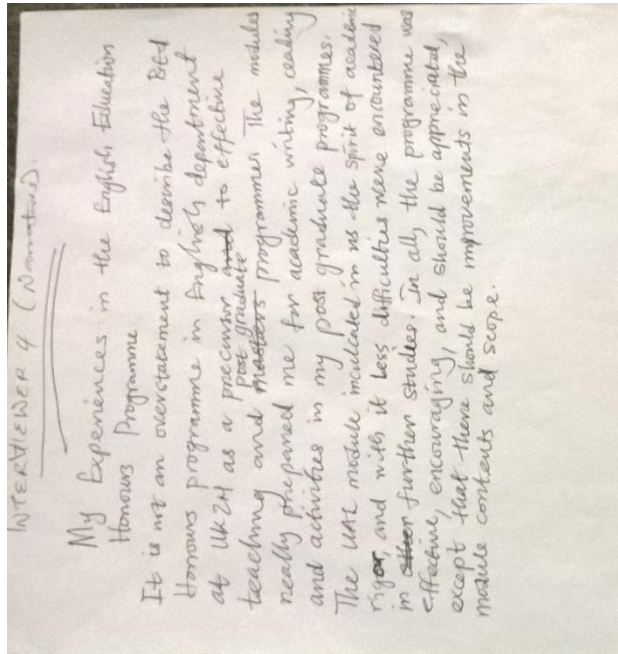 INTERVIEWER 4 (Narrative).
My Experiences in the English Education
Honours Programme
It is not an overstatement to describe the BEd
Honours programme in English department
at UKZN as a precursor and to effective
post graduate
teaching and masters programmes. The modules
really prepared me for academic writing, reading
and activities in my post graduate programmes.
The UAL module inculcated in us the spirit of academic
rigor, and with it less difficulties were encountered
in other further studies. In all, the programme was
effective, encouraging, and should be appreciated,
except that there should be improvements in the
module contents and scope.